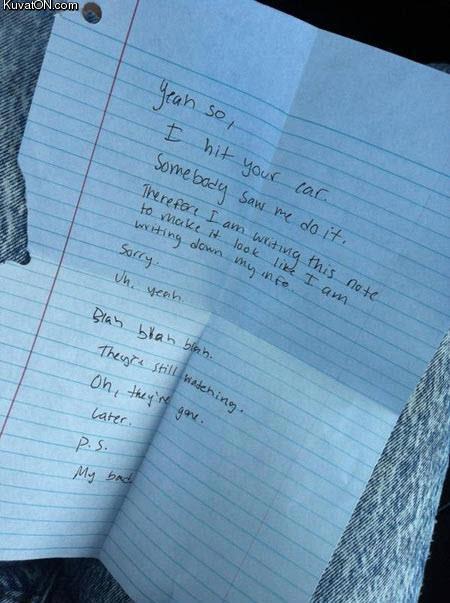 KuvatON.com
Yeah so,
I hit your car.
Somebody saw me do it.
Therefore I am writing this note
to make it look like I am
writing down my info.
Sorry.
Uh. yeah.
Blah blah blah.
They're still watching.
Oh, they're gone.
Later.
P.S.
My bad